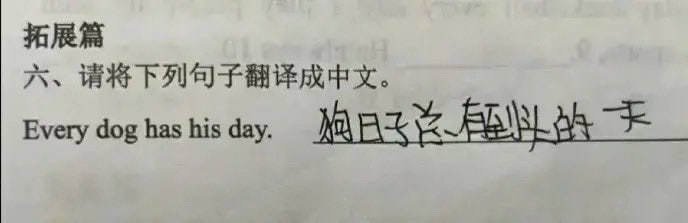 拓展篇
六、请将下列句子翻译成中文。
Every dog has his day. 狗日子总有到头的一天